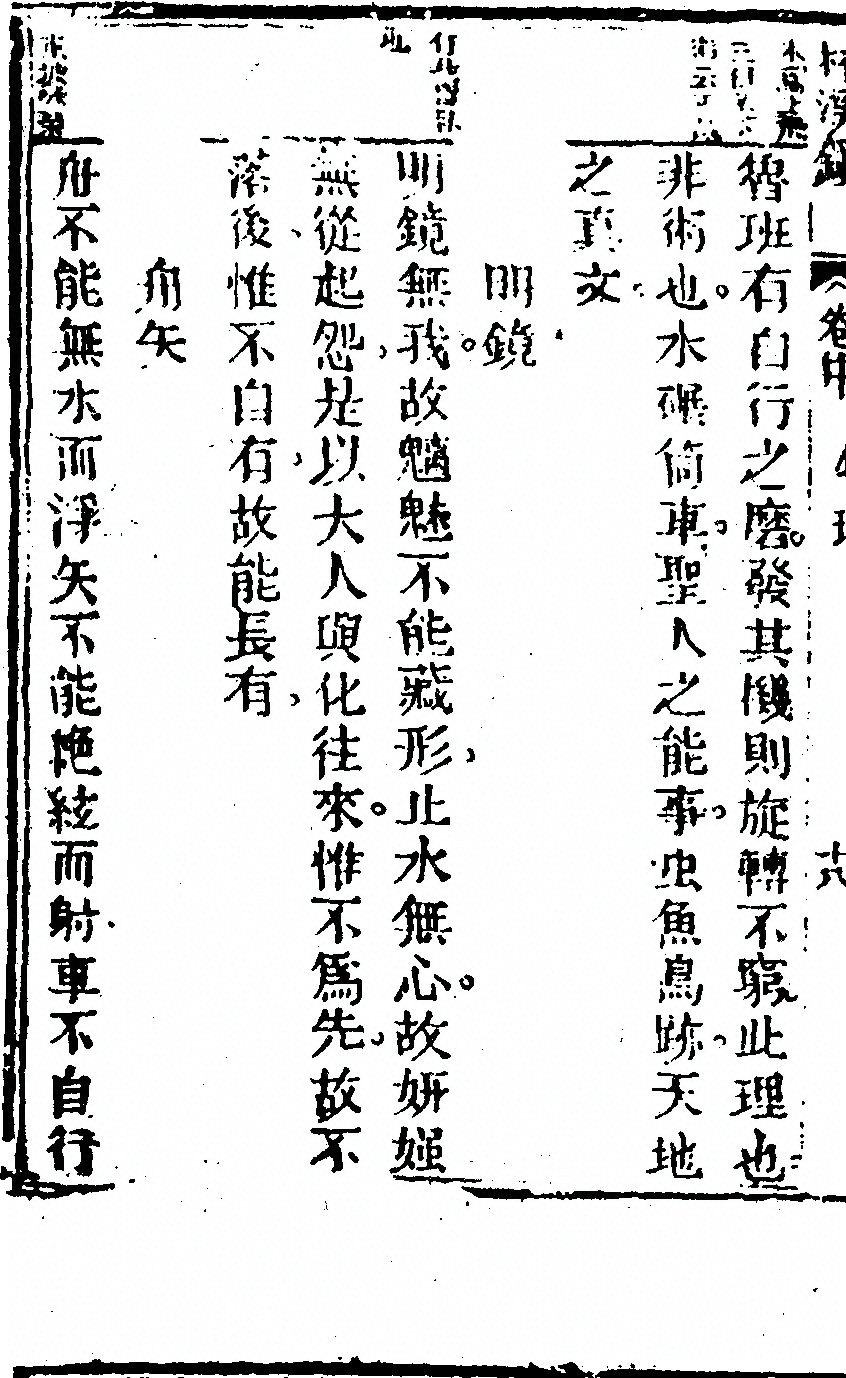 卷中
十八
魯班有自行之磨發其機則旋轉不窮此理也
非術也水碾倚車聖人之能事虫魚鳥跡天地
之真文
明鏡
明鏡無我故魑魅不能藏形止水無心故妍媸
無從起怨是以大人與化往來惟不為先故不
落後惟不自有故能長有
舟矢
舟不能無水而浮矢不能絶絃而射車不自行